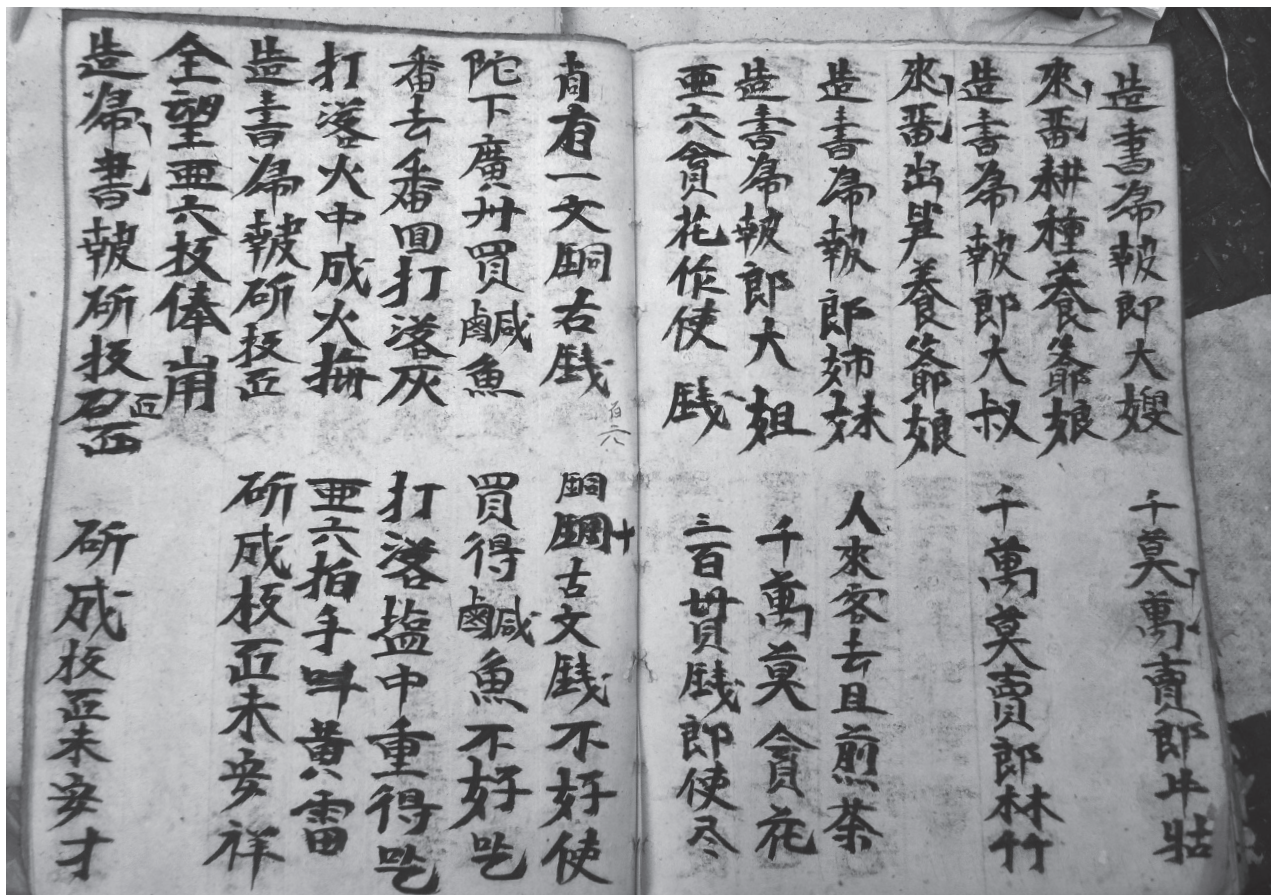 造書為報郎大嫂 千莫萬賣郎牛牯
來番耕種養爺娘
造書為報郎大叔 千萬莫賣郎林竹
來番出笋養爺娘
造書為報郎姉妹 人來客去且煎茶
造書為報郎大姐 千萬莫貪花
亜六貪花作使錢 三百貫錢郎使尽
肯有一文銅右錢 銅古文錢不好使
百六
陀下廣州買鹹魚 買得鹹魚不好吃
番去番回打落灰 打落塩中重得吃
打落火中成火 亜六拍手叫黄雷
造書為報斫板 斫成板未安祥
全望亜六板俸
造為書報斫板 斫成板未安才